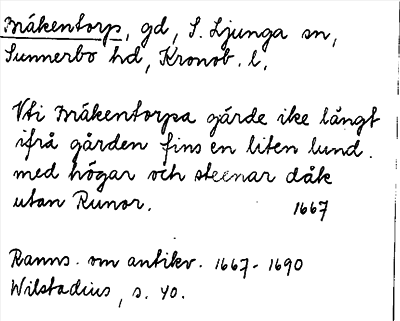 Bråkentorp, gd, S. Ljunga sn,
Sunnerbo hd, Kronob. l.
Vti Bråkentorpa gärde ike långt
ifrå gården fins en liten lund
med högar och steenar dåk
utan Runor. 1667
Ranns. om antikv. 1667-1690
Wilstadius, s. 40.